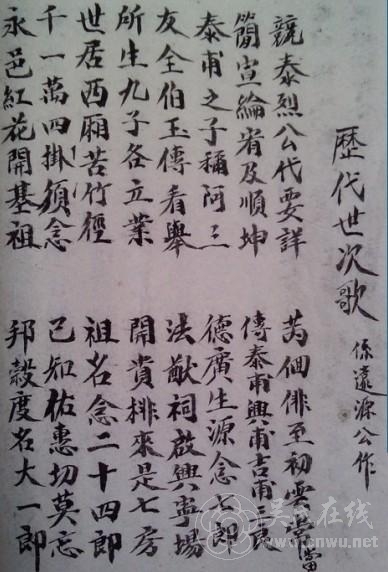 歷代世次歌 係遠源公作
競泰烈公代要詳 芮個俳至初雲當
簡宣綸宥及順坤 傳泰甫興甫吉甫
泰甫之子稱阿三 德廣生源念七郎
友全伯玉傳看舉 法猷祠啟興寧場
所生九子各立業 開賞排來是七房
世居西廂苦竹徑 祖名念二十四郎
千一萬四掛須念 己知祐惠切莫忘
永邑紅花開基祖 邦毅度名大一郎
吴氏在线
www.cnwu.net